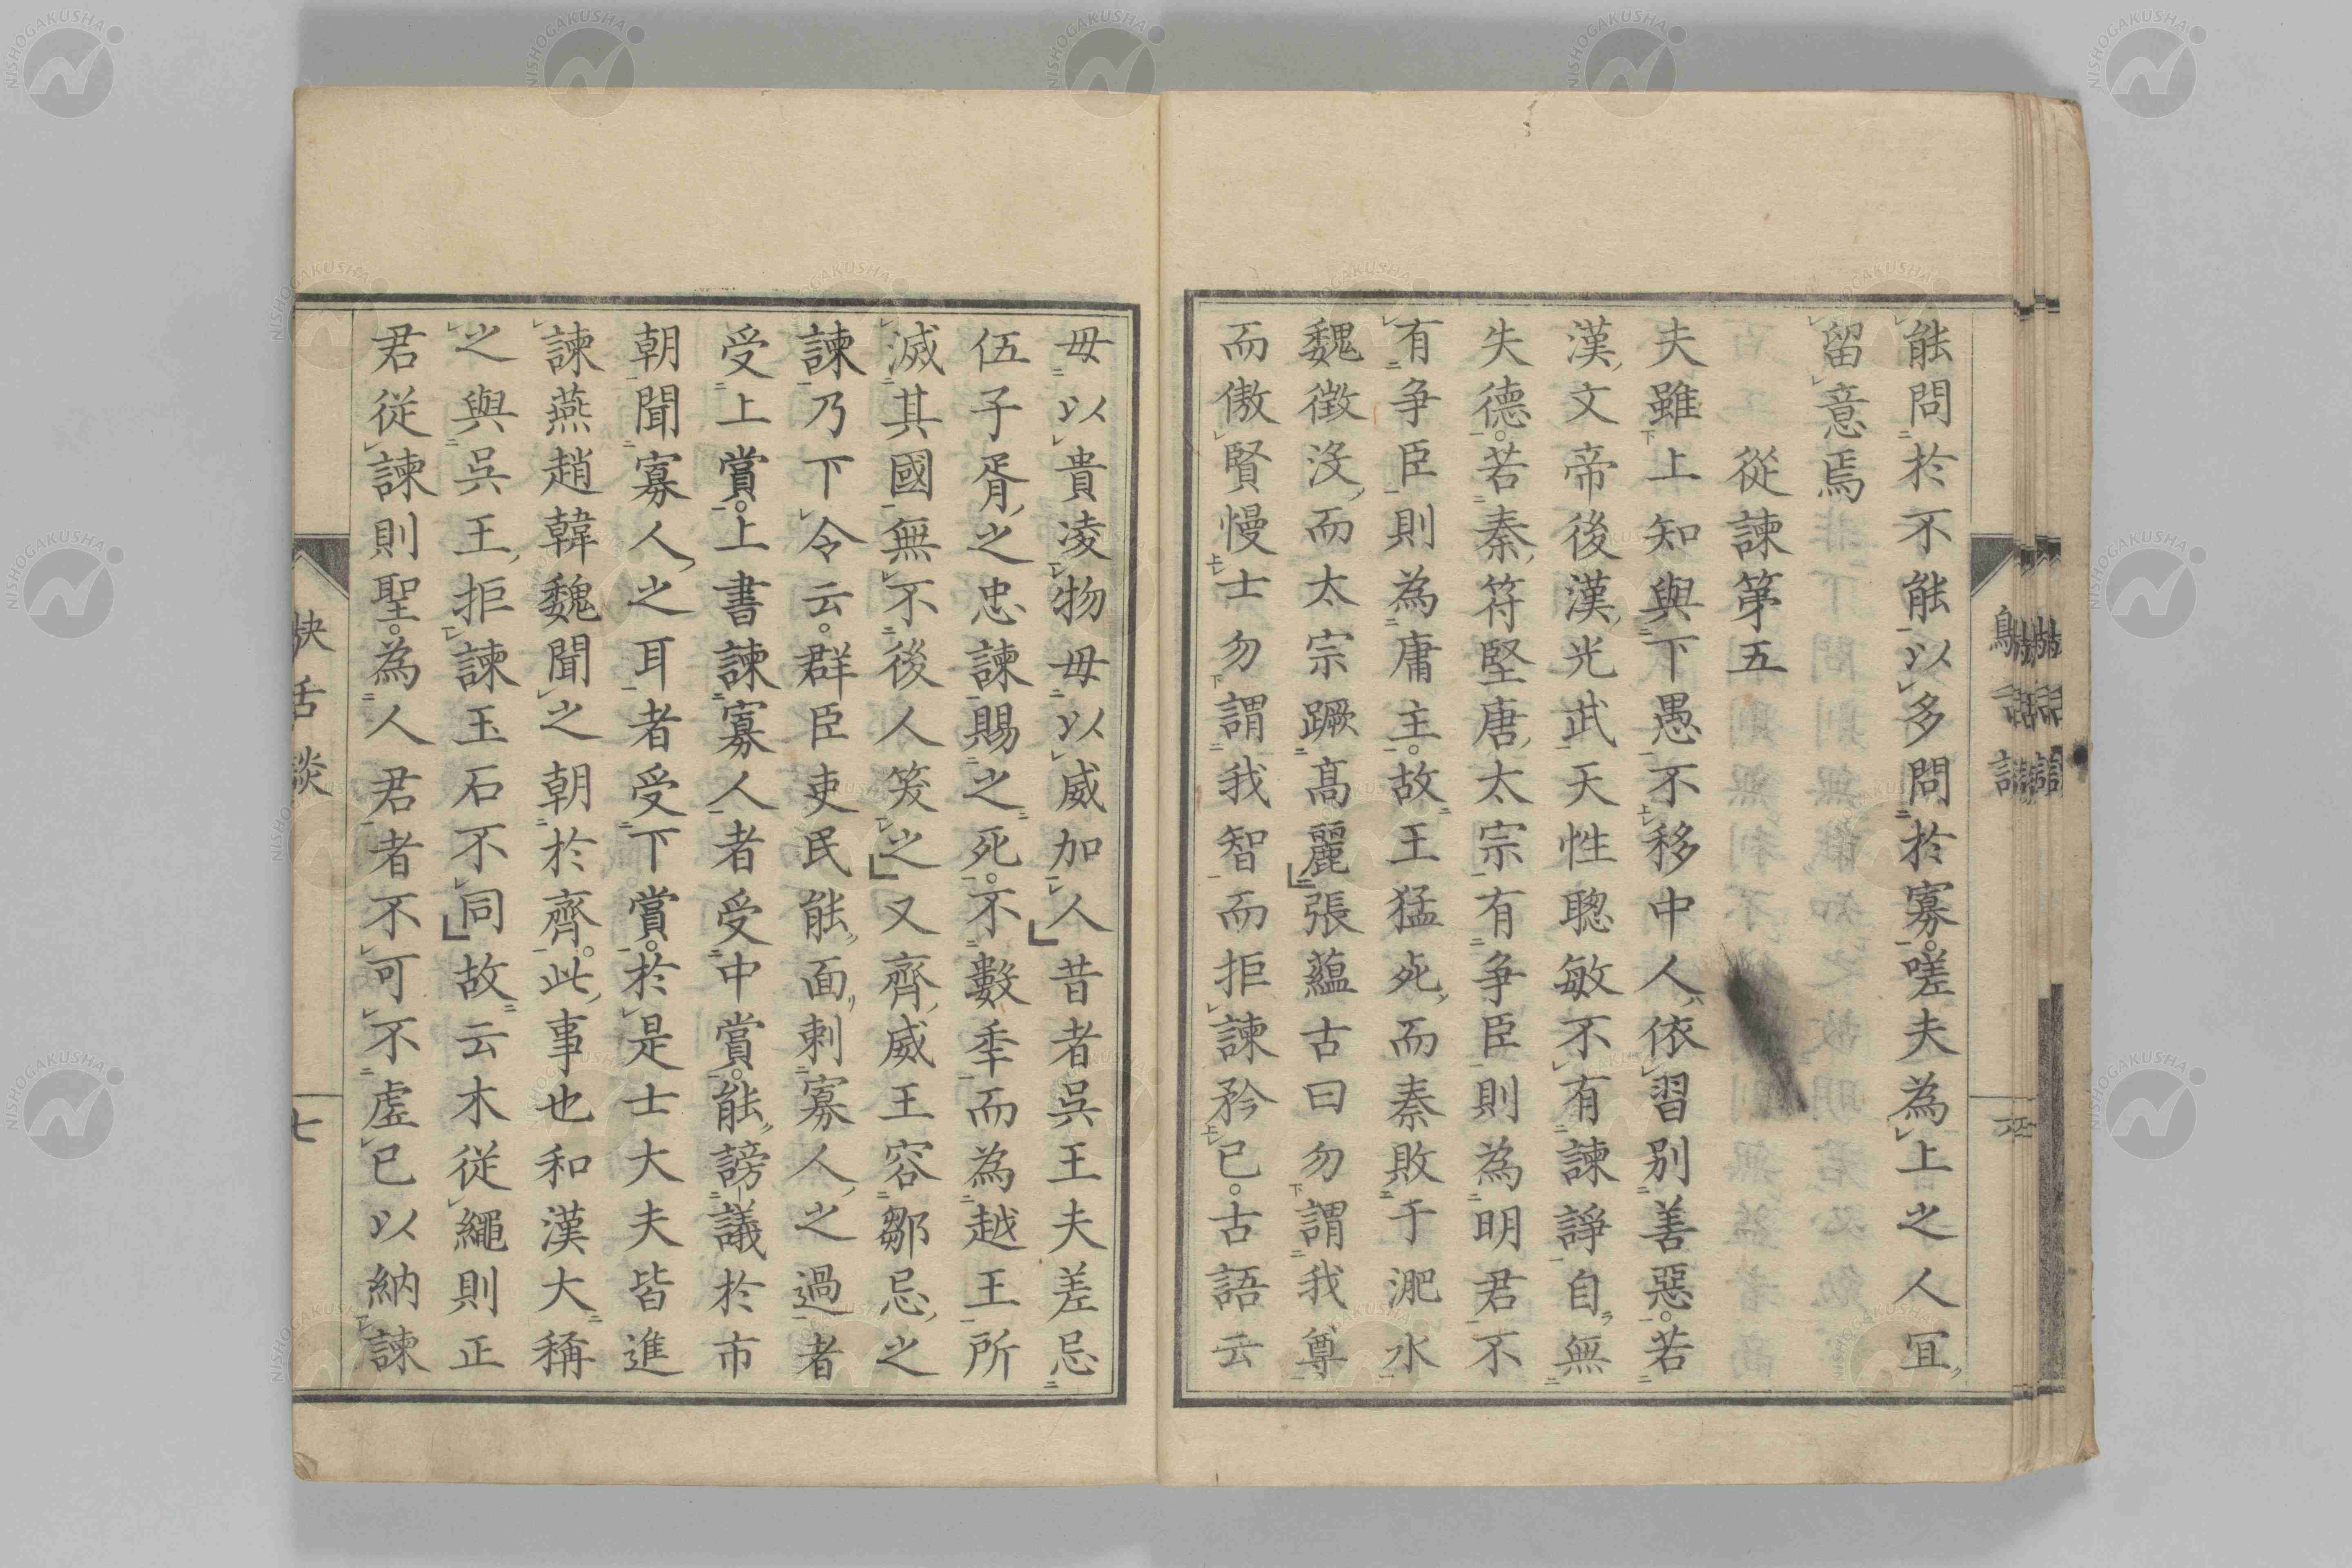 能問於不能以多問於寡嗟夫為上之人宜
留意焉
從諫第五
夫雖上知與下愚不移中人依習別善惡若
漢文帝後漢光武天性聰敏不有諫諍自無
失德若秦符堅唐太宗有争臣則為明君不
有争臣則為庸主故王猛死而秦敗于淝水
魏徴沒而太宗蹶高麗張蘊古曰勿謂我尊
而傲賢慢士勿謂我智而拒諫矜已古語云
毋以貴凌物毋以威加人昔者呉王夫差忌
伍子胥之忠諫賜之死不數年而為越王所
滅其國無不後人笑之又齊威王容鄒忌之
諫乃下令云群臣吏民能面刺寡人之過者
受上賞上書諫寡人者受中賞能謗議於市
朝聞寡人之耳者受下賞於是士大夫皆進
諫燕趙韓魏聞之朝於齊此事也和漢大稱
之與呉王拒諫玉石不同故云木從繩則正
君從諫則聖為人君者不可不虚已以納諫
快舌談
七
NISHOGAKUSHA